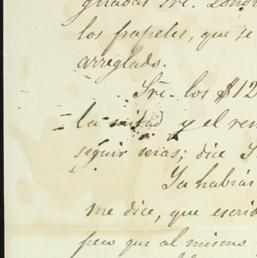 los papeles, que se
arreglado.
Sre. los $12
la mitad y el re
seguir mas; dice S
Ya habrás
me dice, que escrib
pero que al mismo